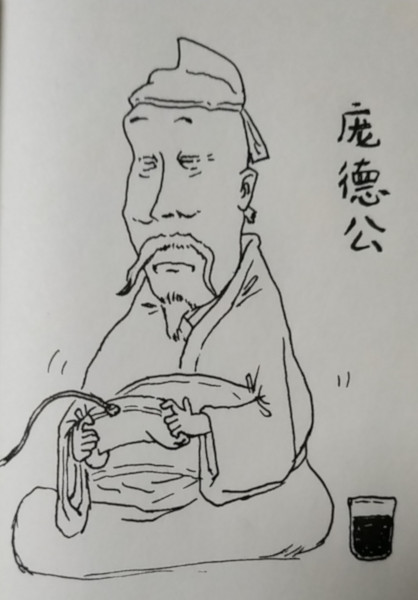 庞德公